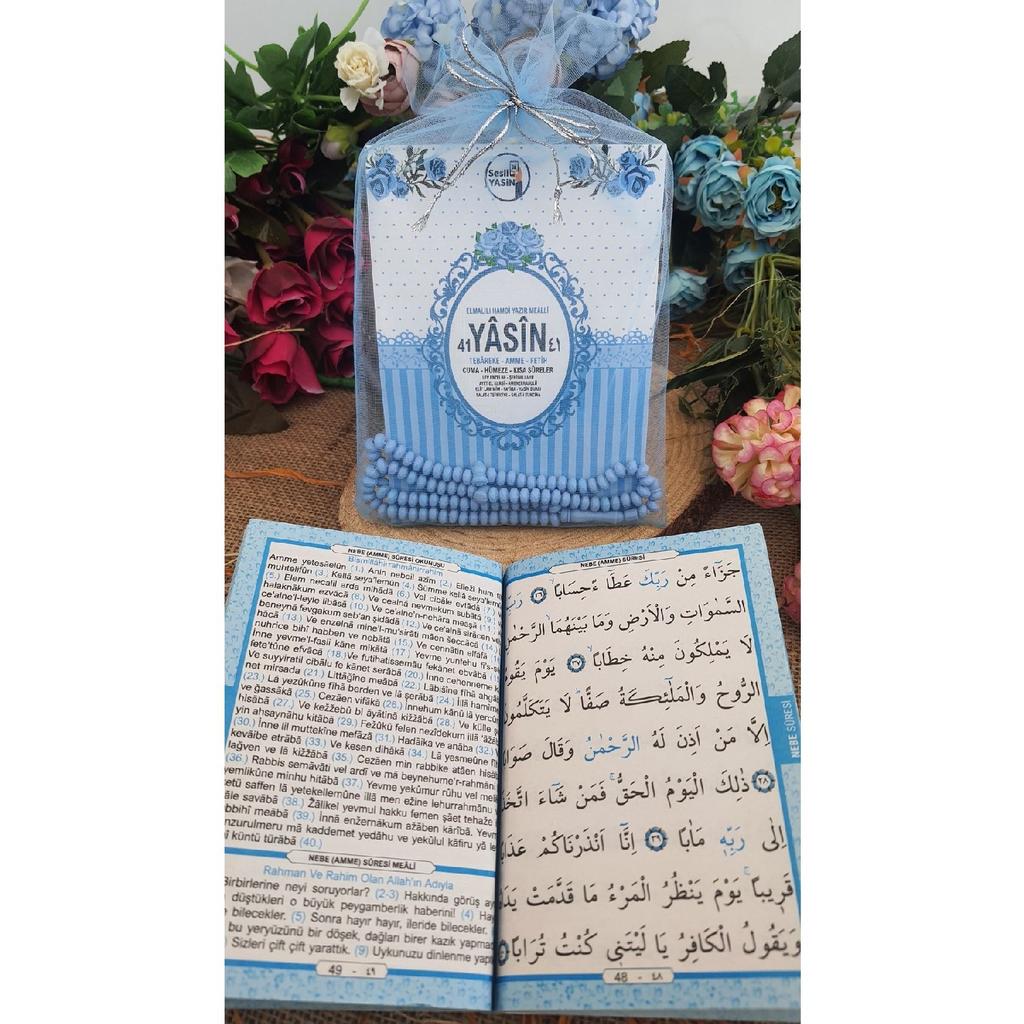 Sesli
YASİN
ELMALILI HAMDİ YAZIR MEALLİ
41 YÂSÎN ٤١
TEBÂREKE - AMME - FETİH
CUMA - HÜMEZE - KISA SÛRELER
NEBE (AMME) SÛRESİ OKUNUŞU
Bismillâhirrahmânirrahîm
Amme yetesâelûn (1.) Anin nebeil azîm (2.) Ellezî hum
muhtelifûn (3.) Kellâ seya'lemûn (4.) Sümme kellâ seya'lemûn
(5.) Elem necalil arda mihâdâ (6.) Vel cibâle evtâdâ (7.)
halaknâkum ezvâcâ (8.) Ve cealnâ nevmekum subâtâ (9.)
ce'alne'l-leyle libâsâ (10.) Ve ce'alne'n-nehâra meaşâ (11.)
beneynâ fevgakum seb'an şidâdâ (12.) Ve ce'alnâ sirâcen
hâcâ (13.) Ve enzelnâ mine'l-mu'sirâti mâen seccâcâ (14.)
nuhrice bihî habben ve nebâtâ (15.) Ve cennâtin elfâfâ (16.)
İnne yevme'l-fasli kâne mîkâtâ (17.) Yevme yunfehu fi's-s
fete'tûne efvâcâ (18.) Ve futihatissemâu fekânet ebvâbâ (19.)
Ve suyyiratil cibâlu fe kânet serâbâ (20.) İnne cehenneme k
net mirsada (21.) Littâğîne meâbâ (22.) Lâbisîne fîhâ ahgâ
(23.) Lâ yezûkûne fîhâ borden ve lâ şerâbâ (24.) İllâ hamîme
ve ğassâkâ (25.) Cezâen vifâkâ (26.) İnnehum kânû lâ yercû
hisâbâ (27.) Ve kezzebû bi âyâtinâ kizzâbâ (28.) Ve külle ş
yin ahsaynâhu kitâbâ (29.) Fezûkû felen nezîdekum illâ 'âzâb
(30.) İnne lil muttekîne mefâzâ (31.) Hadâika ve anâba (32.)
kevâibe etrâbâ (33.) Ve kesen dihâkâ (34.) Lâ yesmeûne fî
lağven ve lâ kizzâbâ (35.) Cezâen min rabbike atâen hisâb
(36.) Rabbis semâvâti vel ardi ve mâ beynehume'r-rahmân
yemlikûne minhu hitâbâ (37.) Yevme yekûmur rûhu vel me
etü saffen lâ yetekellemûne illâ men ežine lehurrahmânu v
âle savâbâ (38.) Žâlikel yevmul hakku femen şâet tehaže
bbihî meâbâ (39.) İnnâ enžernâkum ažâben kârîbâ. Yevm
nzurulmeru mâ kaddemet yedâhu ve yekûlul kâfiru yâ le
î küntü türâbâ (40.)
NEBE (AMME) SÛRESİ MEÂLİ
Rahman Ve Rahim Olan Allah'ın Adıyla
Birbirlerine neyi soruyorlar? (2-3) Hakkında görüş ay
düştükleri o büyük peygamberlik haberini! (4) Hay
bilecekler. (5) Sonra hayır hayır, ileride bilecekler.
bu yeryüzünü bir döşek, dağları birer kazık yapma
) Sizleri çift çift yarattık. (9) Uykunuzu dinlenme yap
49 - ٤٩
NEBE (AMME) SÛRESİ
جَزَٓاءً مِنْ رَبِّكَ عَطَٓاءً حِسَاباً ﴿٣٦﴾ رَبِّ
السَّمٰوَاتِ وَالْاَرْضِ وَمَا بَيْنَهُمَا الرَّحْمٰنِ
لَا يَمْلِكُونَ مِنْهُ خِطَاباً ﴿٣٧﴾ يَوْمَ يَقُومُ
الرُّوحُ وَالْمَلٰٓئِكَةُ صَفًّا لَا يَتَكَلَّمُونَ
اِلَّا مَنْ اَذِنَ لَهُ الرَّحْمٰنُ وَقَالَ صَوَاباً
﴿٣٨﴾ ذٰلِكَ الْيَوْمُ الْحَقُّ فَمَنْ شَٓاءَ اتَّخَذَ
اِلٰى رَبِّهٖ مَاٰباً ﴿٣٩﴾ اِنَّٓا اَنْذَرْنَاكُمْ عَذَاباً
قَرٖيباً يَوْمَ يَنْظُرُ الْمَرْءُ مَا قَدَّمَتْ يَدَاهُ
وَيَقُولُ الْكَافِرُ يَا لَيْتَنٖي كُنْتُ تُرَاباً ﴿٤٠﴾
NEBE SÛRESİ
48 - ٤٨